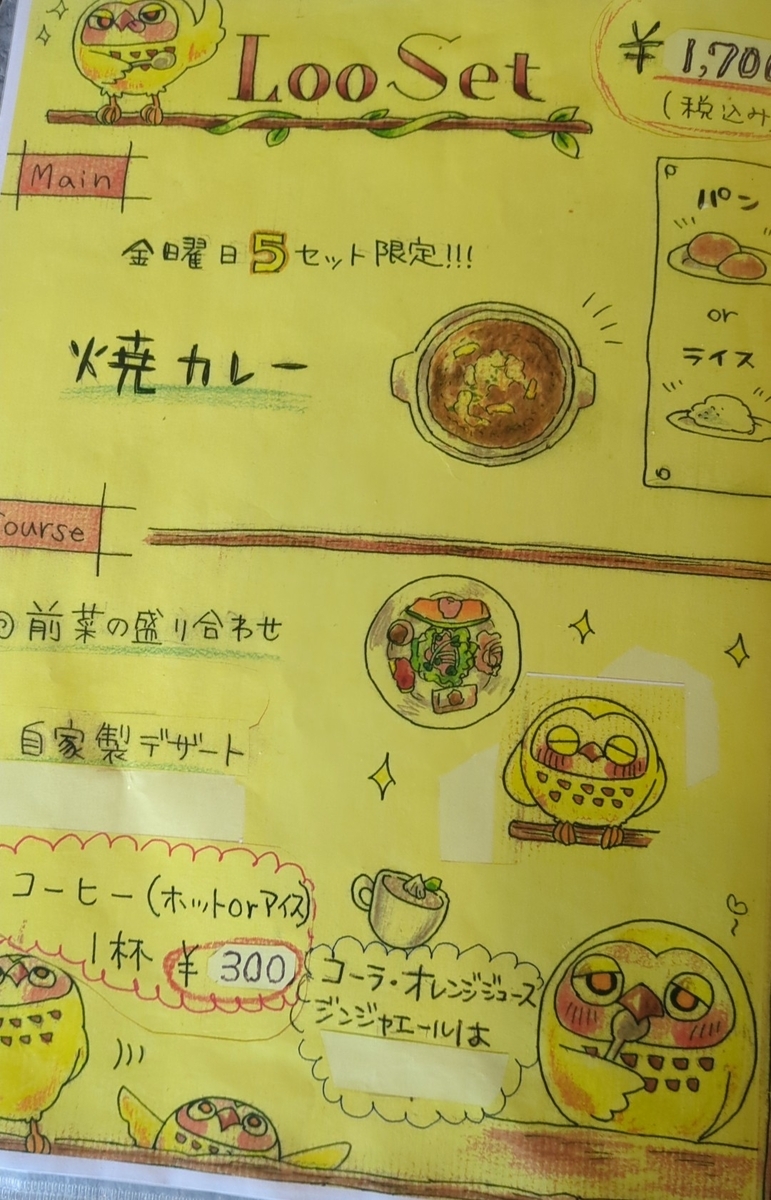 Loo Set
¥ 1,700
(税込み
Main
金曜日5セット限定!!!
焼カレー
パン
or
ライス
Course
前菜の盛り合わせ
自家製デザート
コーヒー(ホットorアイス)
1杯 ¥300
コーラ・オレンジジュース
ジンジャエールは